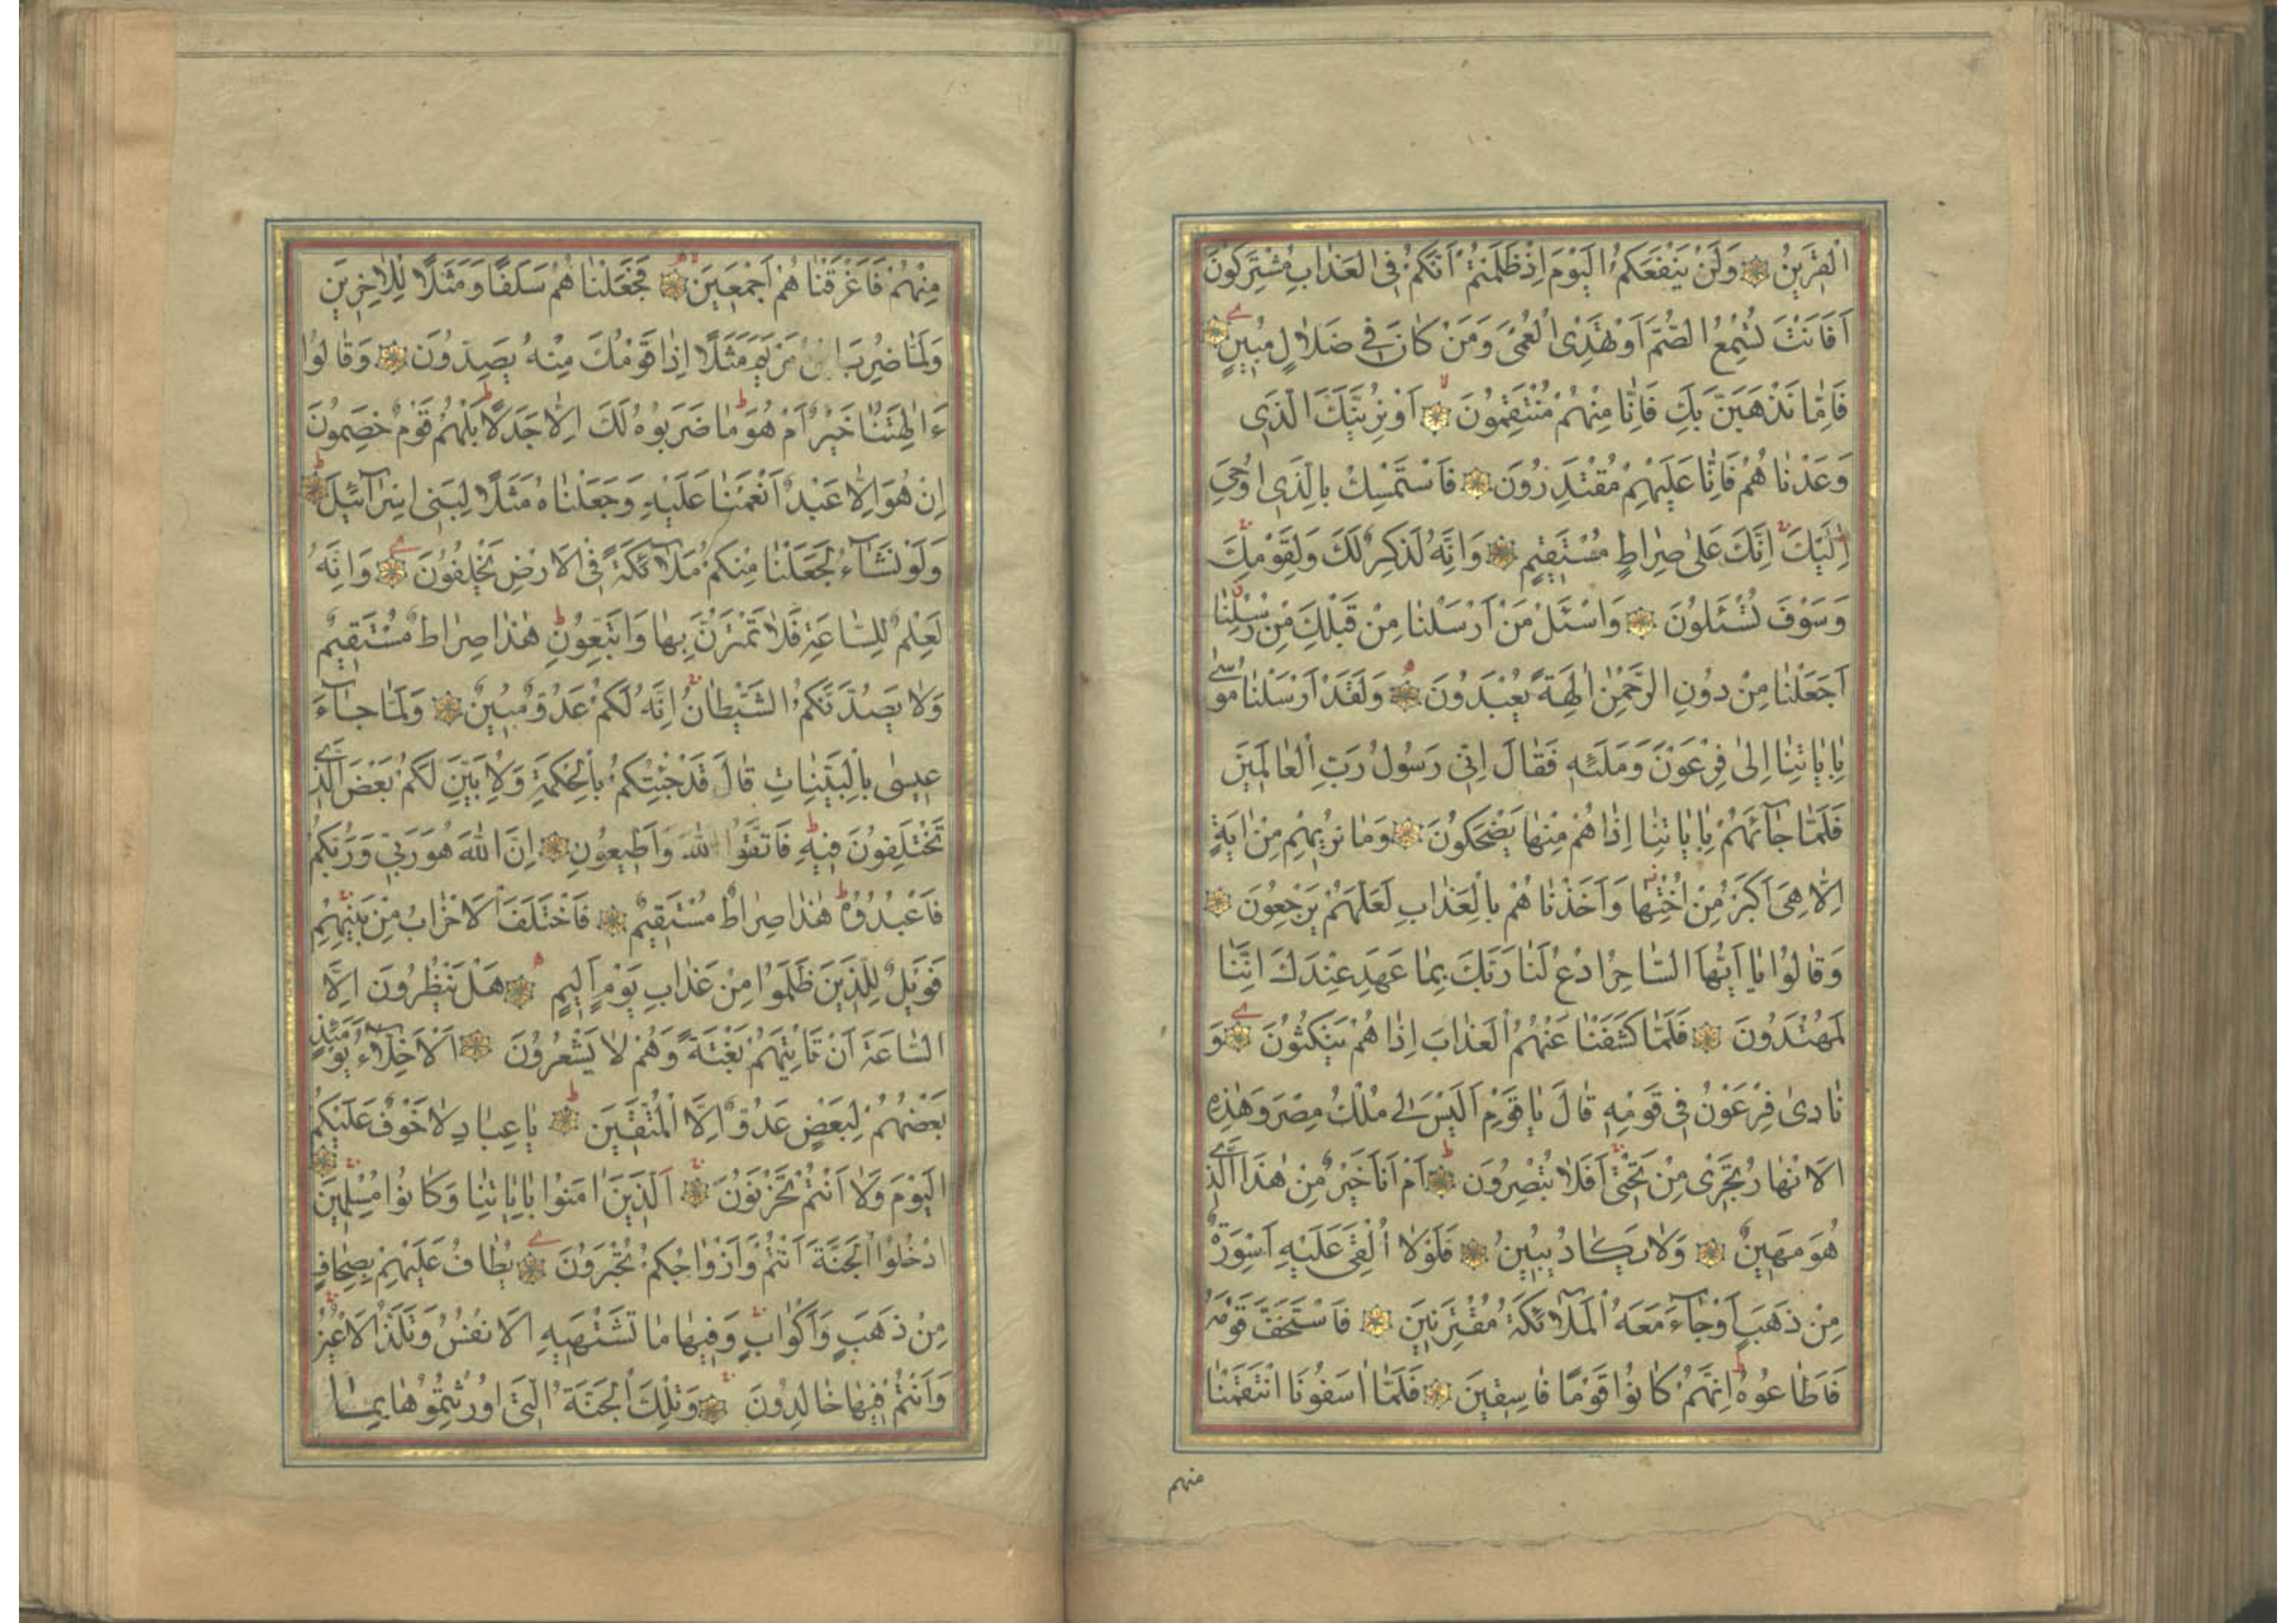 الْقَرِينُ وَلَنْ يَنْفَعَكُمُ الْيَوْمَ اِذْ ظَلَمْتُمْ اَنَّكُمْ فِى الْعَذَابِ مُشْتَرِكُونَ
اَفَاَنْتَ تُسْمِعُ الصُّمَّ اَوْ تَهْدِى الْعُمْىَ وَمَنْ كَانَ فِى ضَلَالٍ مُبِينٍ
فَاِمَّا نَذْهَبَنَّ بِكَ فَاِنَّا مِنْهُمْ مُنْتَقِمُونَ اَوْ نُرِيَنَّكَ الَّذِى
وَعَدْنَا هُمْ فَاِنَّا عَلَيْهِمْ مُقْتَدِرُونَ فَاسْتَمْسِكْ بِالَّذِى اُوحِىَ
اِلَيْكَ اِنَّكَ عَلٰى صِرَاطٍ مُسْتَقِيمٍ وَاِنَّهُ لَذِكْرٌ لَكَ وَلِقَوْمِكَ
وَسَوْفَ تُسْئَلُونَ وَاسْئَلْ مَنْ اَرْسَلْنَا مِنْ قَبْلِكَ مِنْ رُسُلِنَا
اَجَعَلْنَا مِنْ دُونِ الرَّحْمٰنِ اٰلِهَةً يُعْبَدُونَ وَلَقَدْ اَرْسَلْنَا مُوسٰى
بِاٰيَاتِنَا اِلٰى فِرْعَوْنَ وَمَلَئِهِ فَقَالَ اِنِّى رَسُولُ رَبِّ الْعَالَمِينَ
فَلَمَّا جَآءَهُمْ بِاٰيَاتِنَا اِذَا هُمْ مِنْهَا يَضْحَكُونَ وَمَا نُرِيهِمْ مِنْ اٰيَةٍ
اِلَّا هِىَ اَكْبَرُ مِنْ اُخْتِهَا وَاَخَذْنَا هُمْ بِالْعَذَابِ لَعَلَّهُمْ يَرْجِعُونَ
وَقَالُوا يَا اَيُّهَا السَّاحِرُ ادْعُ لَنَا رَبَّكَ بِمَا عَهِدَ عِنْدَكَ اِنَّنَا
لَمُهْتَدُونَ فَلَمَّا كَشَفْنَا عَنْهُمُ الْعَذَابَ اِذَا هُمْ يَنْكُثُونَ وَ
نَادٰى فِرْعَوْنُ فِى قَوْمِهِ قَالَ يَا قَوْمِ اَلَيْسَ لِى مُلْكُ مِصْرَ وَهٰذِهِ
الْاَنْهَارُ تَجْرِى مِنْ تَحْتِى اَفَلَا تُبْصِرُونَ اَمْ اَنَا خَيْرٌ مِنْ هٰذَا الَّذِى
هُوَ مَهِينٌ وَلَا يَكَادُ يُبِينُ فَلَوْلَا اُلْقِىَ عَلَيْهِ اَسْوِرَةٌ
مِنْ ذَهَبٍ اَوْ جَآءَ مَعَهُ الْمَلَآئِكَةُ مُقْتَرِنِينَ فَاسْتَخَفَّ قَوْمَهُ
فَاَطَاعُوهُ اِنَّهُمْ كَانُوا قَوْمًا فَاسِقِينَ فَلَمَّا اٰسَفُونَا انْتَقَمْنَا
منهم
مِنْهُمْ فَاَغْرَقْنَا هُمْ اَجْمَعِينَ فَجَعَلْنَا هُمْ سَلَفًا وَمَثَلًا لِلْاٰخِرِينَ
وَلَمَّا ضُرِبَ ابْنُ مَرْيَمَ مَثَلًا اِذَا قَوْمُكَ مِنْهُ يَصِدُّونَ وَقَالُوا
ءَاٰلِهَتُنَا خَيْرٌ اَمْ هُوَ مَا ضَرَبُوهُ لَكَ اِلَّا جَدَلًا بَلْ هُمْ قَوْمٌ خَصِمُونَ
اِنْ هُوَ اِلَّا عَبْدٌ اَنْعَمْنَا عَلَيْهِ وَجَعَلْنَاهُ مَثَلًا لِبَنِى اِسْرَآئِيلَ
وَلَوْ نَشَآءُ لَجَعَلْنَا مِنْكُمْ مَلَآئِكَةً فِى الْاَرْضِ يَخْلُفُونَ وَاِنَّهُ
لَعِلْمٌ لِلسَّاعَةِ فَلَا تَمْتَرُنَّ بِهَا وَاتَّبِعُونِ هٰذَا صِرَاطٌ مُسْتَقِيمٌ
وَلَا يَصُدَّنَّكُمُ الشَّيْطَانُ اِنَّهُ لَكُمْ عَدُوٌّ مُبِينٌ وَلَمَّا جَآءَ
عِيسٰى بِالْبَيِّنَاتِ قَالَ قَدْ جِئْتُكُمْ بِالْحِكْمَةِ وَلِاُبَيِّنَ لَكُمْ بَعْضَ الَّذِى
تَخْتَلِفُونَ فِيهِ فَاتَّقُوا اللّٰهَ وَاَطِيعُونِ اِنَّ اللّٰهَ هُوَ رَبِّى وَرَبُّكُمْ
فَاعْبُدُوهُ هٰذَا صِرَاطٌ مُسْتَقِيمٌ فَاخْتَلَفَ الْاَحْزَابُ مِنْ بَيْنِهِمْ
فَوَيْلٌ لِلَّذِينَ ظَلَمُوا مِنْ عَذَابِ يَوْمٍ اَلِيمٍ هَلْ يَنْظُرُونَ اِلَّا
السَّاعَةَ اَنْ تَأْتِيَهُمْ بَغْتَةً وَهُمْ لَا يَشْعُرُونَ اَلْاَخِلَّآءُ يَوْمَئِذٍ
بَعْضُهُمْ لِبَعْضٍ عَدُوٌّ اِلَّا الْمُتَّقِينَ يَا عِبَادِ لَا خَوْفٌ عَلَيْكُمُ
الْيَوْمَ وَلَا اَنْتُمْ تَحْزَنُونَ اَلَّذِينَ اٰمَنُوا بِاٰيَاتِنَا وَكَانُوا مُسْلِمِينَ
اُدْخُلُوا الْجَنَّةَ اَنْتُمْ وَاَزْوَاجُكُمْ تُحْبَرُونَ يُطَافُ عَلَيْهِمْ بِصِحَافٍ
مِنْ ذَهَبٍ وَاَكْوَابٍ وَفِيهَا مَا تَشْتَهِيهِ الْاَنْفُسُ وَتَلَذُّ الْاَعْيُنُ
وَاَنْتُمْ فِيهَا خَالِدُونَ وَتِلْكَ الْجَنَّةُ الَّتِى اُورِثْتُمُوهَا بِمَا